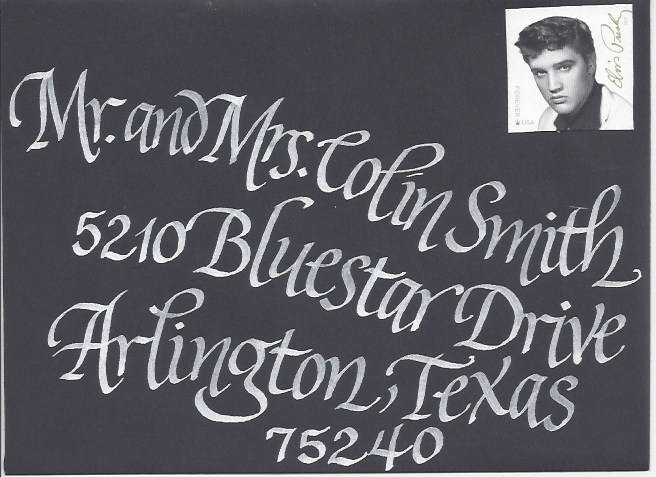 Elvis Presley
FOREVER USA
Mr. and Mrs. Colin Smith
5210 Bluestar Drive
Arlington, Texas
75240